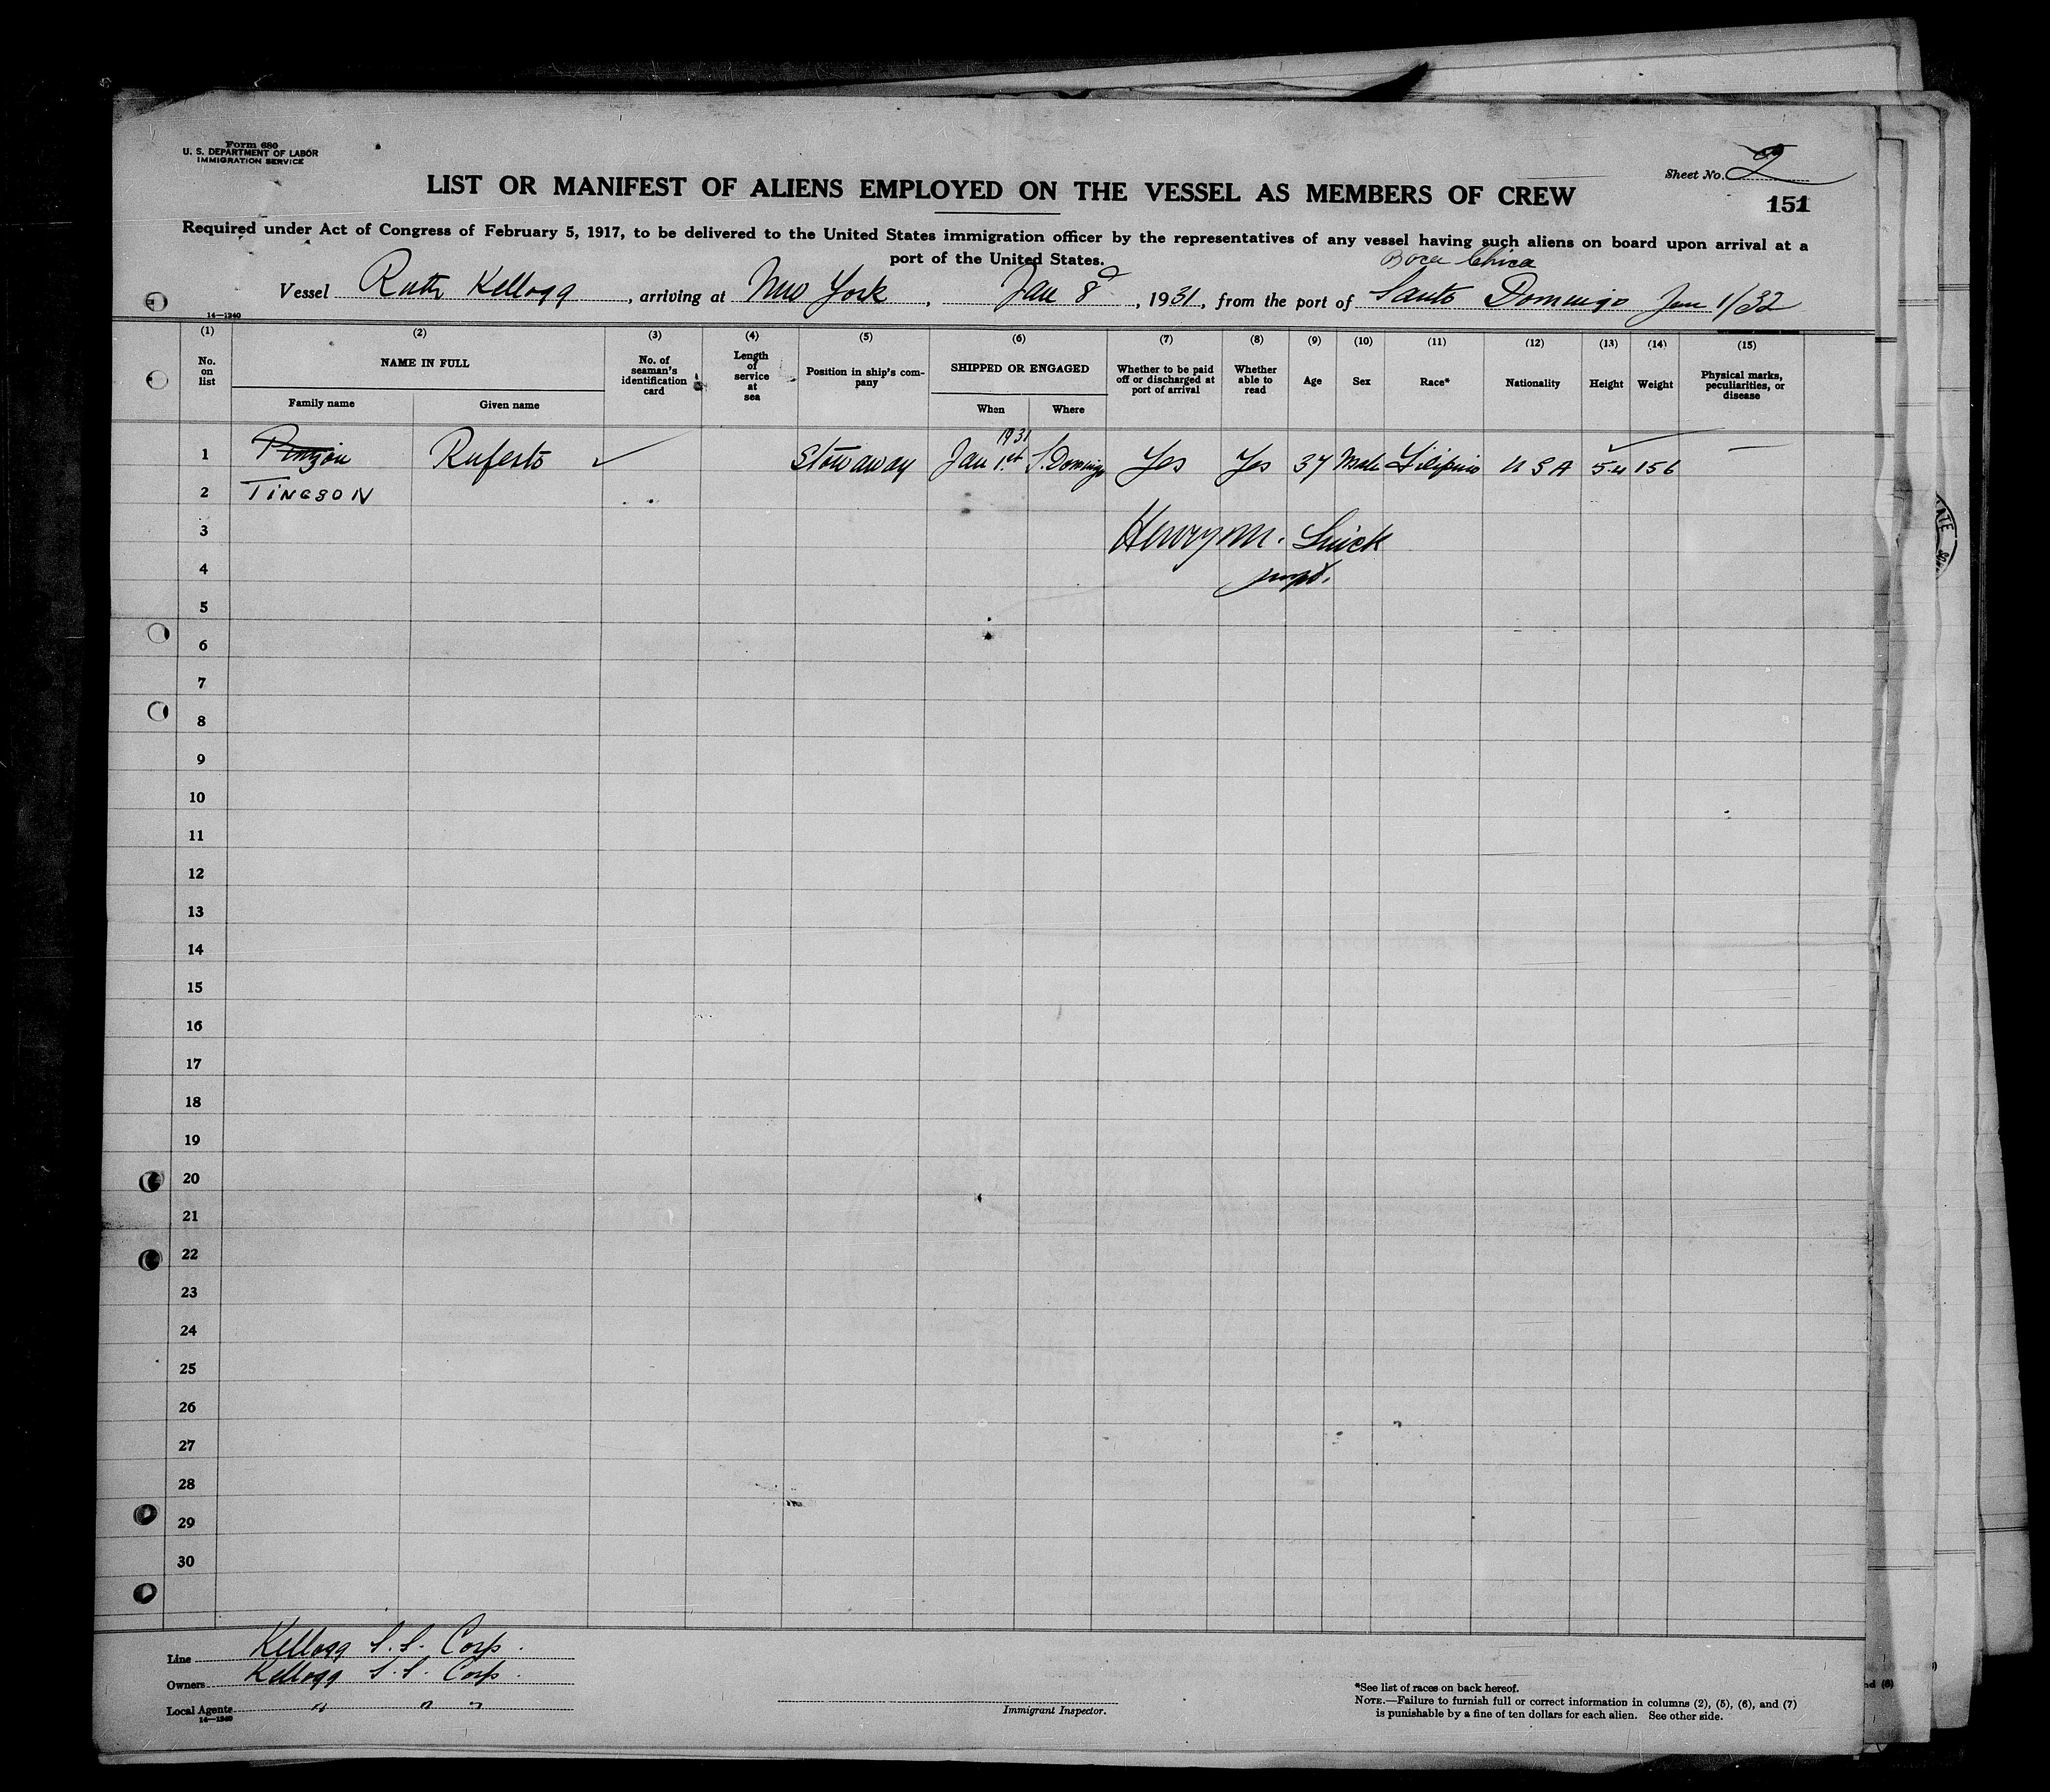 Form 680
U. S. DEPARTMENT OF LABOR
IMMIGRATION SERVICE
Sheet No. 2
151
LIST OR MANIFEST OF ALIENS EMPLOYED ON THE VESSEL AS MEMBERS OF CREW
Required under Act of Congress of February 5, 1917, to be delivered to the United States immigration officer by the representatives of any vessel having such aliens on board upon arrival at a
port of the United States.
Boca Chica
Vessel Ruth Kellogg, arriving at New York, Jan 8, 1931, from the port of Santo Domingo Jan 1/32
14—1240
(1) (2) (3) (4) (5) (6) (7) (8) (9) (10) (11) (12) (13) (14) (15)
No. on list
NAME IN FULL
Family name
Given name
No. of seaman's identification card
Length of service at sea
Position in ship's company
SHIPPED OR ENGAGED
When
Where
Whether to be paid off or discharged at port of arrival
Whether able to read
Age
Sex
Race*
Nationality
Height
Weight
Physical marks, peculiarities, or disease
1931
1 Pinzon Ruferto ✓ Stowaway Jan 1st S. Domingo Yes Yes 37 Male Filipino USA 5-4 156 —
2 TINGSON
3 Henry M.
4
5
6
7
8
9
10
11
12
13
14
15
16
17
18
19
20
21
22
23
24
25
26
27
28
29
30
Line Kellogg S.S. Corp.
Owners Kellogg S.S. Corp.
Local Agents " " "
14—1240
Immigrant Inspector.
*See list of races on back hereof.
NOTE.—Failure to furnish full or correct information in columns (2), (5), (6), and (7)
is punishable by a fine of ten dollars for each alien. See other side.